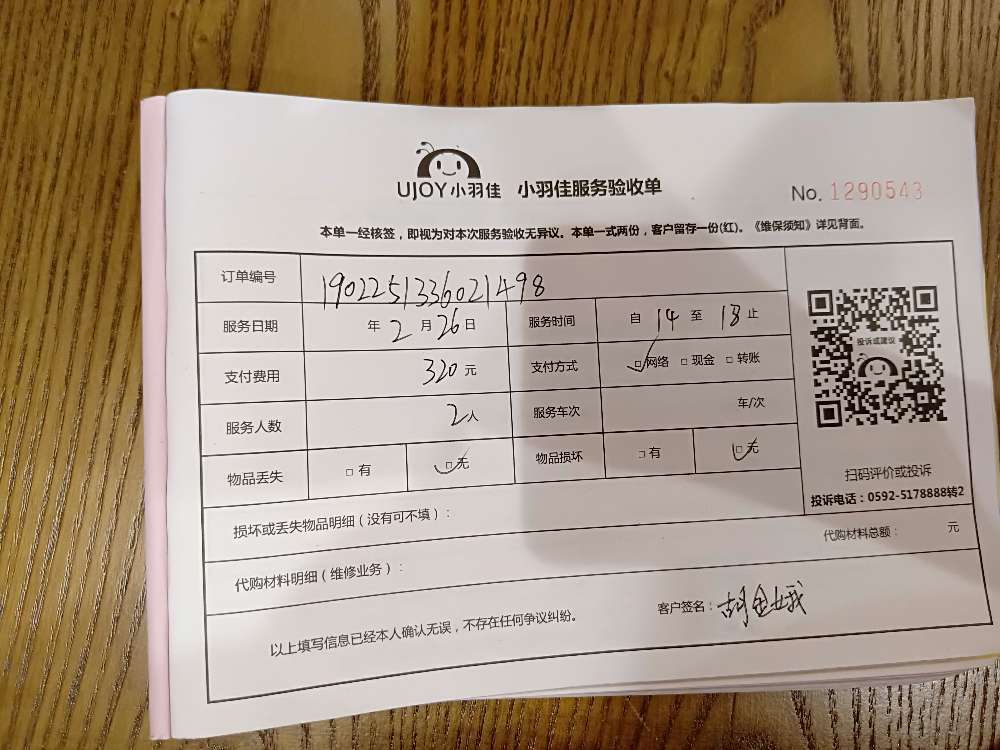 UJOY小羽佳 小羽佳服务验收单 No. 1290543
本单一经核签，即视为对本次服务验收无异议。本单一式两份，客户留存一份(红)。《维保须知》详见背面。
订单编号 1902251336021498
服务日期 年 2 月 26 日 服务时间 自 14 至 18 止
支付费用 320 元 支付方式 □网络 □现金 □转账
服务人数 2人 服务车次 车/次
物品丢失 □有 □无 物品损坏 □有 □无
投诉或建议
扫码评价或投诉
投诉电话：0592-5178888转2
损坏或丢失物品明细（没有可不填）：
代购材料明细（维修业务）： 代购材料总额： 元
以上填写信息已经本人确认无误，不存在任何争议纠纷。 客户签名：胡金娥